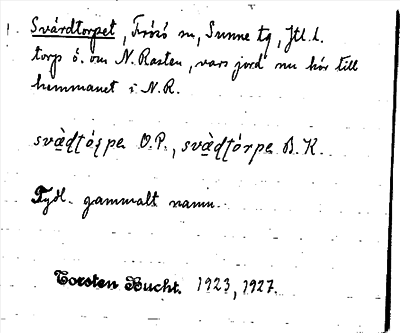 1. Svärdtorpet, Frösö sn, Sunne tg, Jtl. l.
torp ö. om N. Rasten, vars jord nu hör till
hemmanet i N.R.
svà̤dṭó̤rpe O.P., svà̤dṭórpe B.K.
Tydl. gammalt namn.
Torsten Bucht. 1923, 1927.